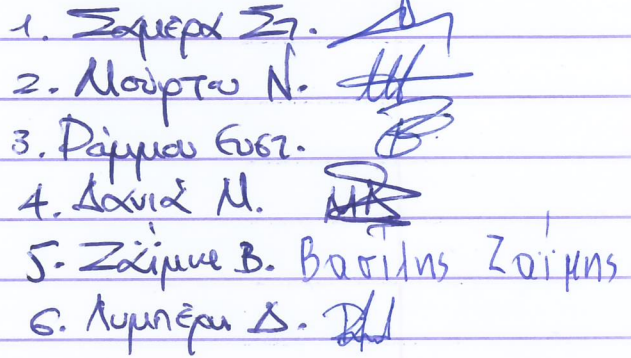 1. Σαμερά Στ.
2. Μούρτου Ν.
3. Ράμμου Ευστ.
4. Δανιά Μ.
5. Ζαΐμη Β. Βασίλης Ζαΐμης
6. Λυμπέρη Δ.